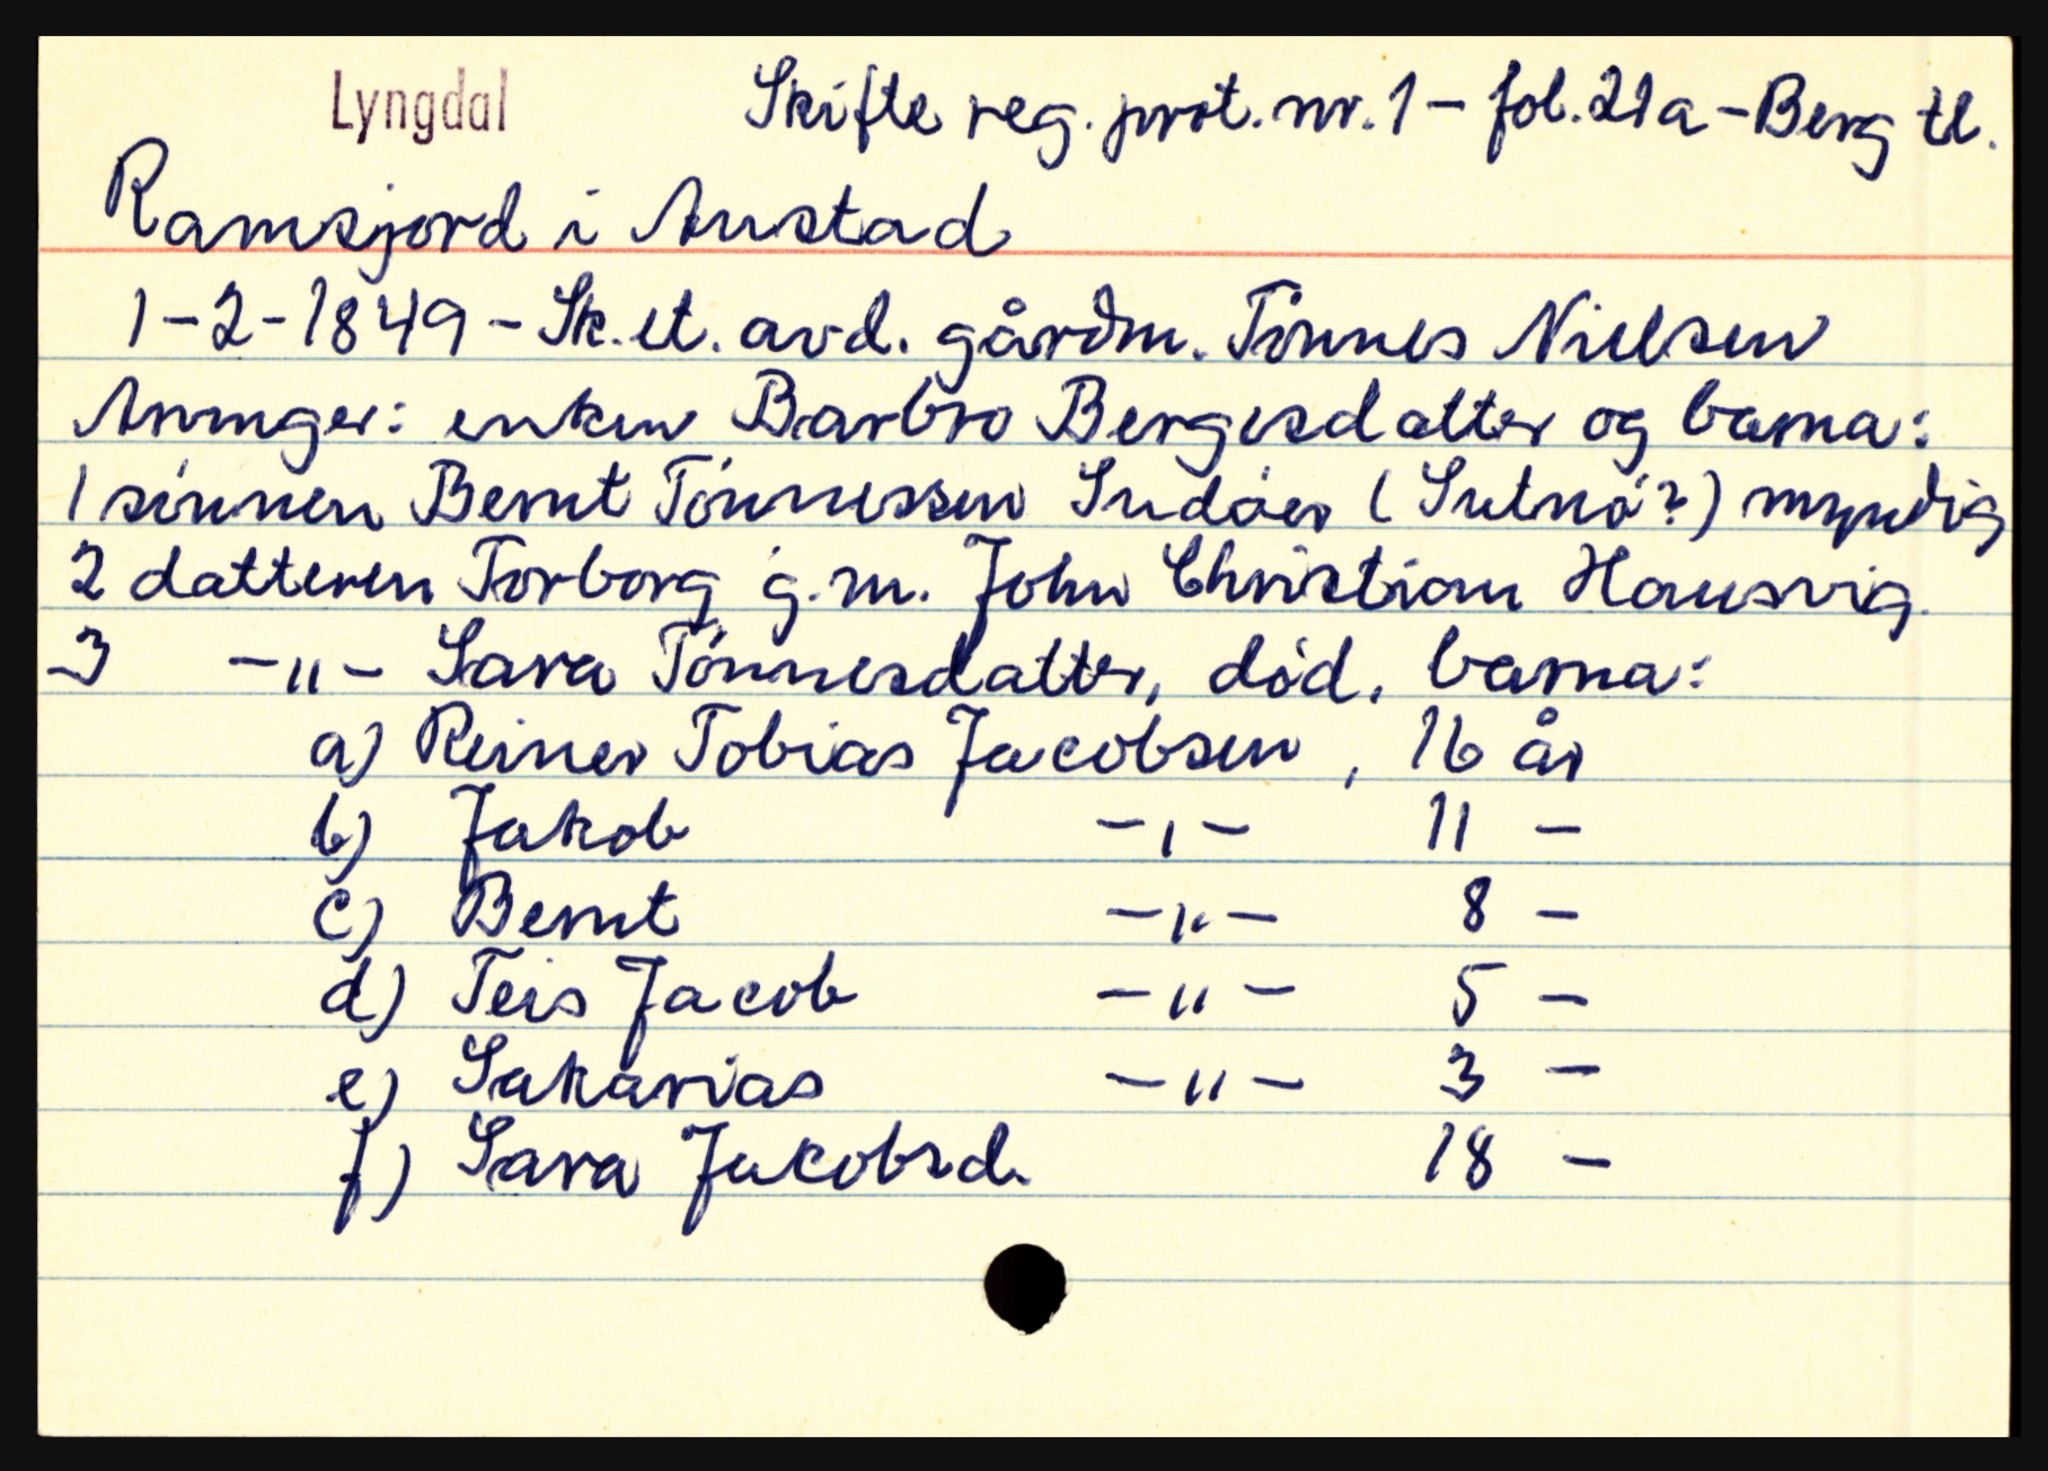 Lyngdal Skifte reg. prot. nr. 1 - fol. 21a - Berg tl.
Ramsjord i Austad
1-2-1849 - Sk. et. avd. gårdm. Tönnes Nielsen
Arvinger: enken Barbro Bergesdatter og barna:
1 sönnen Bernt Tönnessen Sudöer (Sutnö?) myndig
2 datteren Torborg g. m. John Christian Hausvig
3 -"- Sara Tönnesdatter, död, barna:
a) Reiner Tobias Jacobsen, 16 år
b) Jakob -"- 11 -
c) Bernt -"- 8 -
d) Teis Jacob -"- 5 -
e) Sakarias -"- 3 -
f) Sara Jacobsd. 18 -